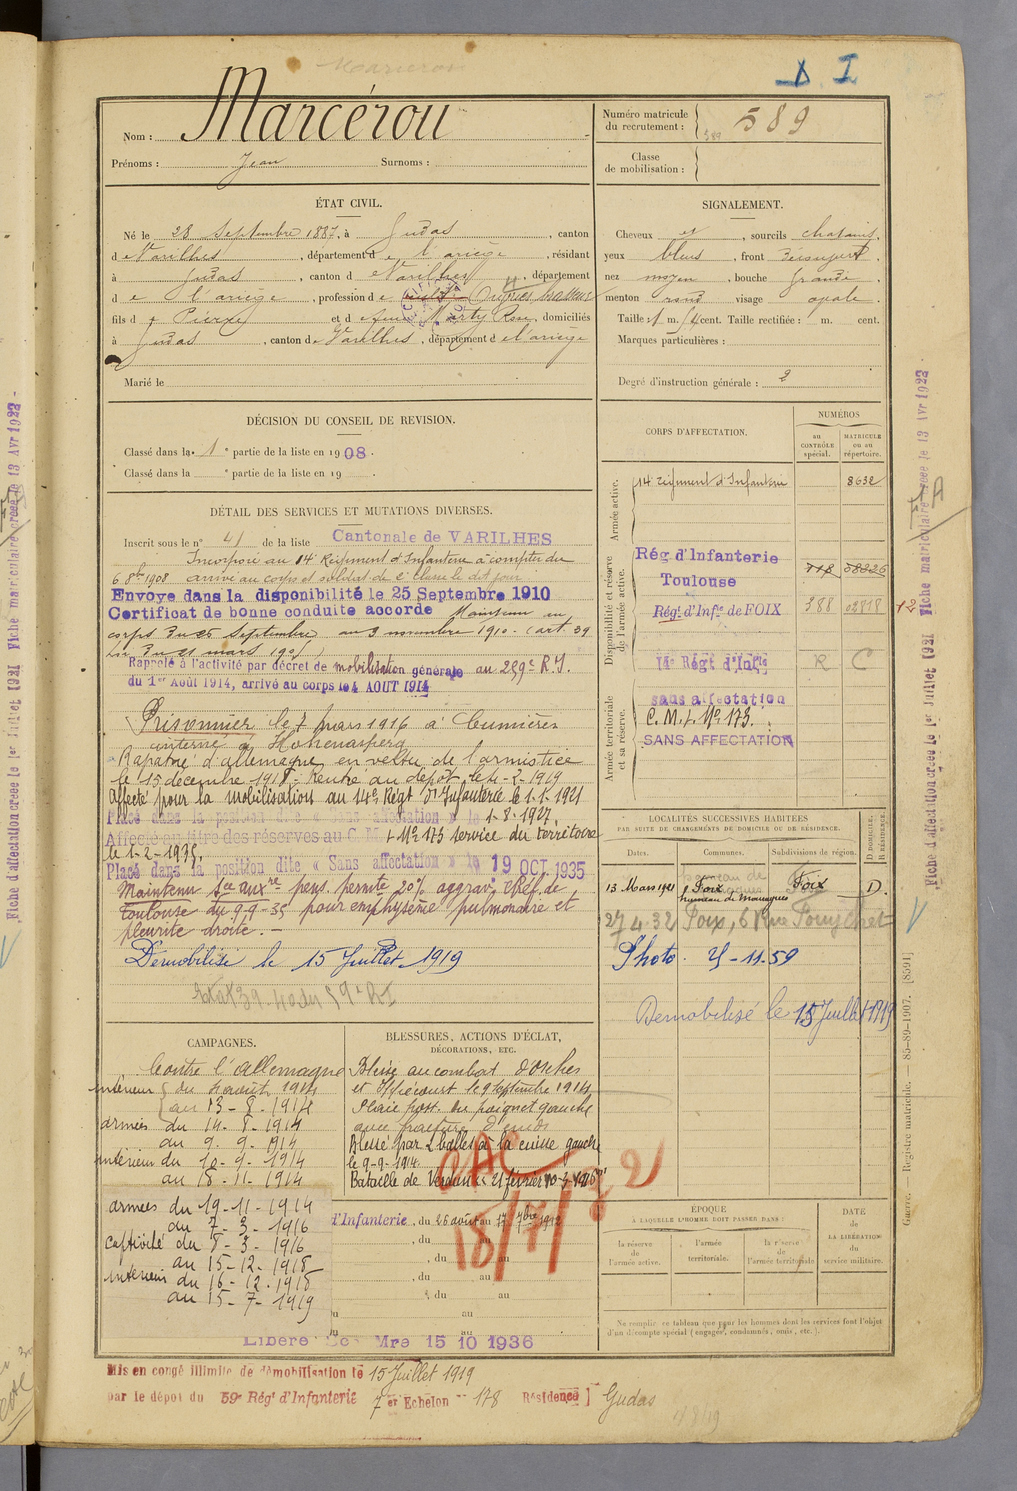 D I
Nom : Marcérou
Prénoms : Jean Surnoms :
Numéro matricule du recrutement : 589
Classe de mobilisation :
ÉTAT CIVIL.
Né le 28 Septembre 1887, à Gudas, canton
de Varilhes, département de l'ariège, résidant
à Gudas, canton de Varilhes, département
de l'ariège, profession de Ouvrier brasseur
fils de Pierre et de feue Marty Rose, domiciliés
à Gudas, canton de Varilhes, département de l'ariège
Marié le
SIGNALEMENT.
Cheveux et, sourcils chatains,
yeux bleus, front découvert,
nez moyen, bouche grande,
menton rond visage ovale.
Taille 1 m. cent. Taille rectifiée : m. cent.
Marques particulières :
Degré d'instruction générale : 2
DÉCISION DU CONSEIL DE REVISION.
Classé dans la 1e partie de la liste en 1908.
Classé dans la e partie de la liste en 19
DÉTAIL DES SERVICES ET MUTATIONS DIVERSES.
Inscrit sous le n° 41 de la liste Cantonale de VARILHES
Incorporé au 14e Régiment d'Infanterie à compter du
6 8bre 1908 arrivé au corps et soldat de 2e classe le dit jour
Envoyé dans la disponibilité le 25 Septembre 1910
Certificat de bonne conduite accordé Maintenu au
corps du 25 Septembre au 3 novembre 1910. (art. 39
Loi du 21 mars 1905)
Rappelé à l'activité par décret de mobilisation générale au 259e R.I.
du 1er Août 1914, arrivé au corps le 4 AOUT 1914
Prisonnier le 7 mars 1916 à Cumières
interné à Hohenasperg
Rapatrié d'allemagne en vertu de l'armistice
le 15 décembre 1918. Rentré au dépôt le 4-2-1919
Affecté pour la mobilisation au 14e Régt d'Infanterie le 1.1.1921
Placé dans la position dite « Sans affectation » le 1-8-1927.
Affecté au titre des réserves au C.M.I. No 173 service du territoire
le 1-2-1935.
Placé dans la position dite « Sans affectation » le 19 OCT 1935
Maintenu Sce auxre pens. permte 20% aggrav. CRéf de
Toulouse du 9-9-35 pour emphysème pulmonaire et
pleurite droite. -
Démobilisé le 15 Juillet 1919
CORPS D'AFFECTATION.
NUMÉROS
au CONTRÔLE spécial.
MATRICULE ou au répertoire.
Armée active.
14e régiment d'Infanterie 8632
Disponibilité et réserve de l'armée active.
Rég d'Infanterie
Toulouse
Régt d'Infie de FOIX 388 02818
14e Régt d'Infie R C
Armée territoriale et sa réserve.
sans affectation
C.M.I. No 173.
SANS AFFECTATION
LOCALITÉS SUCCESSIVES HABITÉES
PAR SUITE DE CHANGEMENTS DE DOMICILE OU DE RÉSIDENCE.
Dates. Communes. Subdivisions de région. D DOMICILE. R RÉSIDENCE.
13 Mars 1921 Foix Foix D.
hameau de
27 4.32 Foix, 6 Rue
Photo. 25-11-59
Démobilisé le 15 Juillet 1919
CAMPAGNES.
Contre l'allemagne
intérieur du 4 août 1914
au 13-8-1914
armées du 14-8-1914
au 9.9-1914
intérieur du 10-9-1914
au 18-11-1914
armées du 19-11-1914
au 7-3-1916
captivité du 8-3-1916
au 15-12-1918
intérieur du 16-12.1918
au 15-7-1919
BLESSURES, ACTIONS D'ÉCLAT,
DÉCORATIONS, ETC.
Blessé au combat d'Osches
et Ippécourt le 9 septembre 1914
Plaie post. du poignet gauche
avec fracture d'un os
Blessé par 2 balles à la cuisse gauche
le 9-9-1914.
Bataille de Verdun
CAC
18/7/
d'Infanterie, du 26 août au 17 7bre 1912
, du au
, du au
, du au
, du au
au
Libéré 15 10 1936
ÉPOQUE
À LAQUELLE L'HOMME DOIT PASSER DANS :
la réserve de l'armée active.
l'armée territoriale.
la réserve de l'armée territoriale
DATE DE LA LIBÉRATION du service militaire.
Ne remplir ce tableau que pour les hommes dont les services font l'objet
d'un décompte spécial (engagés, condamnés, omis, etc.).
Mis en congé illimité de démobilisation le 15 Juillet 1919
par le dépôt du 59e Régt d'Infanterie 7er Echelon 178 Résidence Gudas
Fiche d'affectation créée le 1er Juillet 1921 Fiche matriculaire créée le 13 Avr 1923
Guerre. — Registre matricule. — 85-89-1907. [8591]